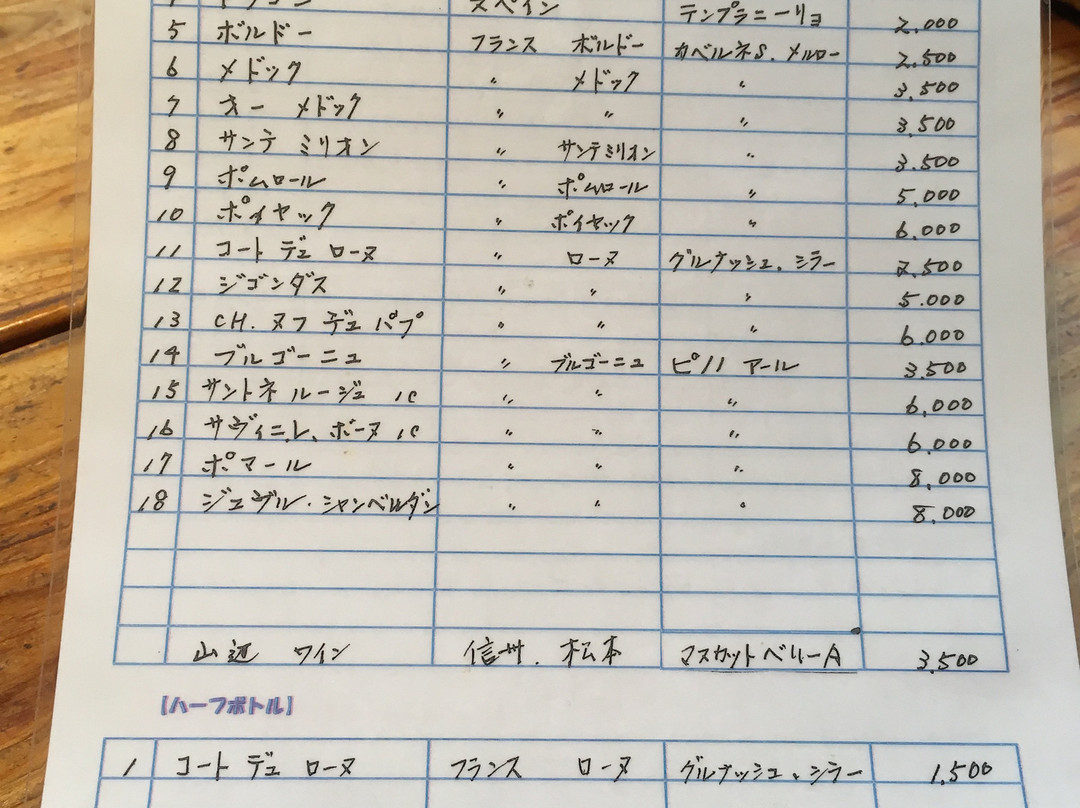 スペイン テンプラニーリョ 2.000
5 ボルドー フランス ボルドー カベルネS. メルロー 2.500
6 メドック 〃 メドック 〃 3.500
7 オー メドック 〃 〃 〃 3.500
8 サンテ ミリオン 〃 サンテミリオン 〃 3.500
9 ポムロール 〃 ポムロール 〃 5.000
10 ポイヤック 〃 ポイヤック 〃 6.000
11 コート デュ ローヌ 〃 ローヌ グルナッシュ、シラー 2.500
12 ジゴンダス 〃 〃 〃 5.000
13 CH. ヌフ デュ パプ 〃 〃 〃 6.000
14 ブルゴーニュ 〃 ブルゴーニュ ピノノアール 3.500
15 サントネ ルージュ 1C 〃 〃 〃 6.000
16 サヴィニ.レ.ボーヌ 1C 〃 〃 〃 6.000
17 ポマール 〃 〃 〃 8.000
18 ジュヴル・シャンベルダン 〃 〃 〃 8.000
山辺 ワイン 信州. 松本 マスカットベリーA 3.500
【ハーフボトル】
1 コート デュ ローヌ フランス ローヌ グルナッシュ、シラー 1.500